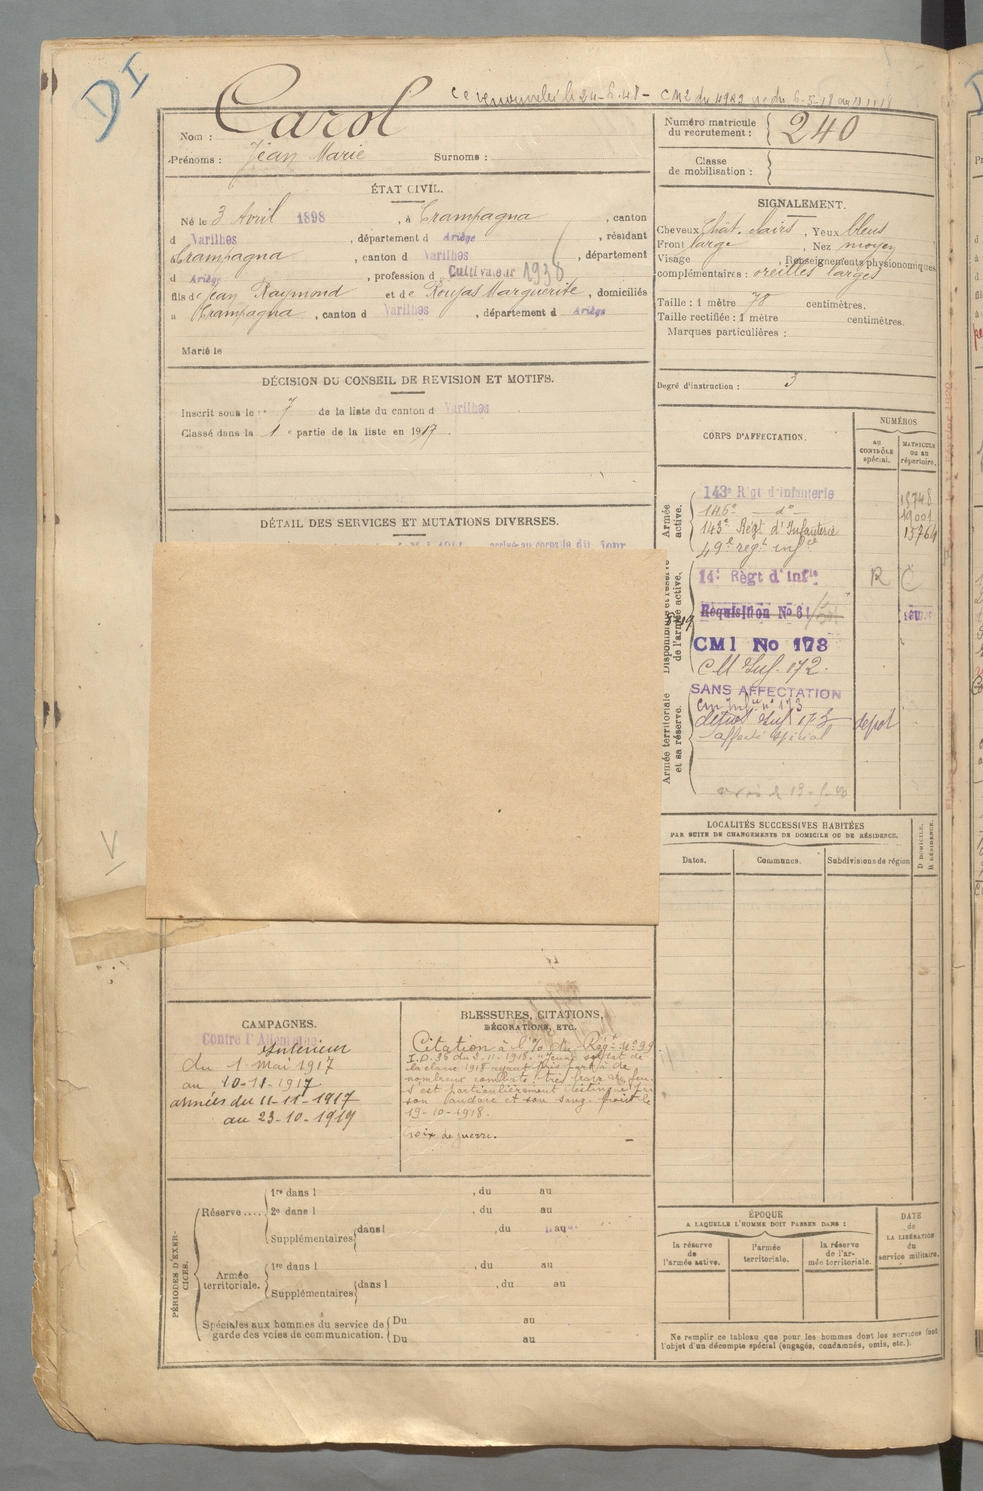 DI
CM2 du 4982
Carol
Nom :
Prénoms : Jean Marie Surnoms :
Numéro matricule du recrutement : 240
Classe de mobilisation :
ÉTAT CIVIL.
Né le 3 Avril 1898, à Crampagna, canton
d Varilhes, département d Ariège, résidant
à Crampagna, canton d Varilhes, département
d Ariège, profession d Cultivateur 1938
fils de Jean Raymond et de Roujas Marguerite, domiciliés
à Crampagna, canton d Varilhes, département d Ariège
Marié le
SIGNALEMENT.
Cheveux Chât. clairs, Yeux bleus
Front large, Nez moyen
Visage , Renseignements physionomiques
complémentaires : oreilles larges
Taille : 1 mètre 78 centimètres.
Taille rectifiée : 1 mètre centimètres.
Marques particulières :
Degré d'instruction : 3
DÉCISION DU CONSEIL DE REVISION ET MOTIFS.
Inscrit sous le n° 7 de la liste du canton d Varilhes
Classé dans la 1e partie de la liste en 1917.
DÉTAIL DES SERVICES ET MUTATIONS DIVERSES.
arrivé au corps le dit jour
CORPS D'AFFECTATION.
NUMÉROS
AU CONTRÔLE spécial.
MATRICULE OU AU répertoire.
Armée active.
143e Régt d'infanterie 18748
146e — do — 19001
143e Régt d'Infanterie 15764
49e regt infie
Disponibilité et réserve de l'armée active.
14e Règt d'Infie R C
Réquisition No 61
CMI No 173
C M Inf. 172.
Armée territoriale et sa réserve.
SANS AFFECTATION
cm Infie n° 173
détrot Inf 173 depot
affecté spécial
LOCALITÉS SUCCESSIVES HABITÉES
PAR SUITE DE CHANGEMENTS DE DOMICILE OU DE RÉSIDENCE.
Dates. Communes. Subdivisions de région
D DOMICILE, R RÉSIDENCE.
V
CAMPAGNES.
Contre l'Allemagne
Intérieur
du 1 Mai 1917
au 10-11-1917
armées du 11-11-1917
au 23-10-1919
BLESSURES, CITATIONS,
DÉCORATIONS, ETC.
Citation à l'O. du Régt N° 99
I.D. 36 du 2.11.1918. "Jeune soldat de
la classe 1918 ayant pris part à de
nombreux combats très brave au feu.
S'est particulièrement distingué par
son audace et son sang froid le
19-10-1918.
Croix de guerre.
PÉRIODES D'EXERCICES.
Réserve .... 1re dans l , du au
2e dans l , du au
Supplémentaires dans l , du au
Armée territoriale. 1re dans l , du au
Supplémentaires dans l , du au
Spéciales aux hommes du service de garde des voies de communication. Du au
Du au
ÉPOQUE
A LAQUELLE L'HOMME DOIT PASSER DANS :
la réserve de l'armée active.
l'armée territoriale.
la réserve de l'armée territoriale.
DATE de LA LIBÉRATION du service militaire.
Ne remplir ce tableau que pour les hommes dont les services font
l'objet d'un décompte spécial (engagés, condamnés, omis, etc.).